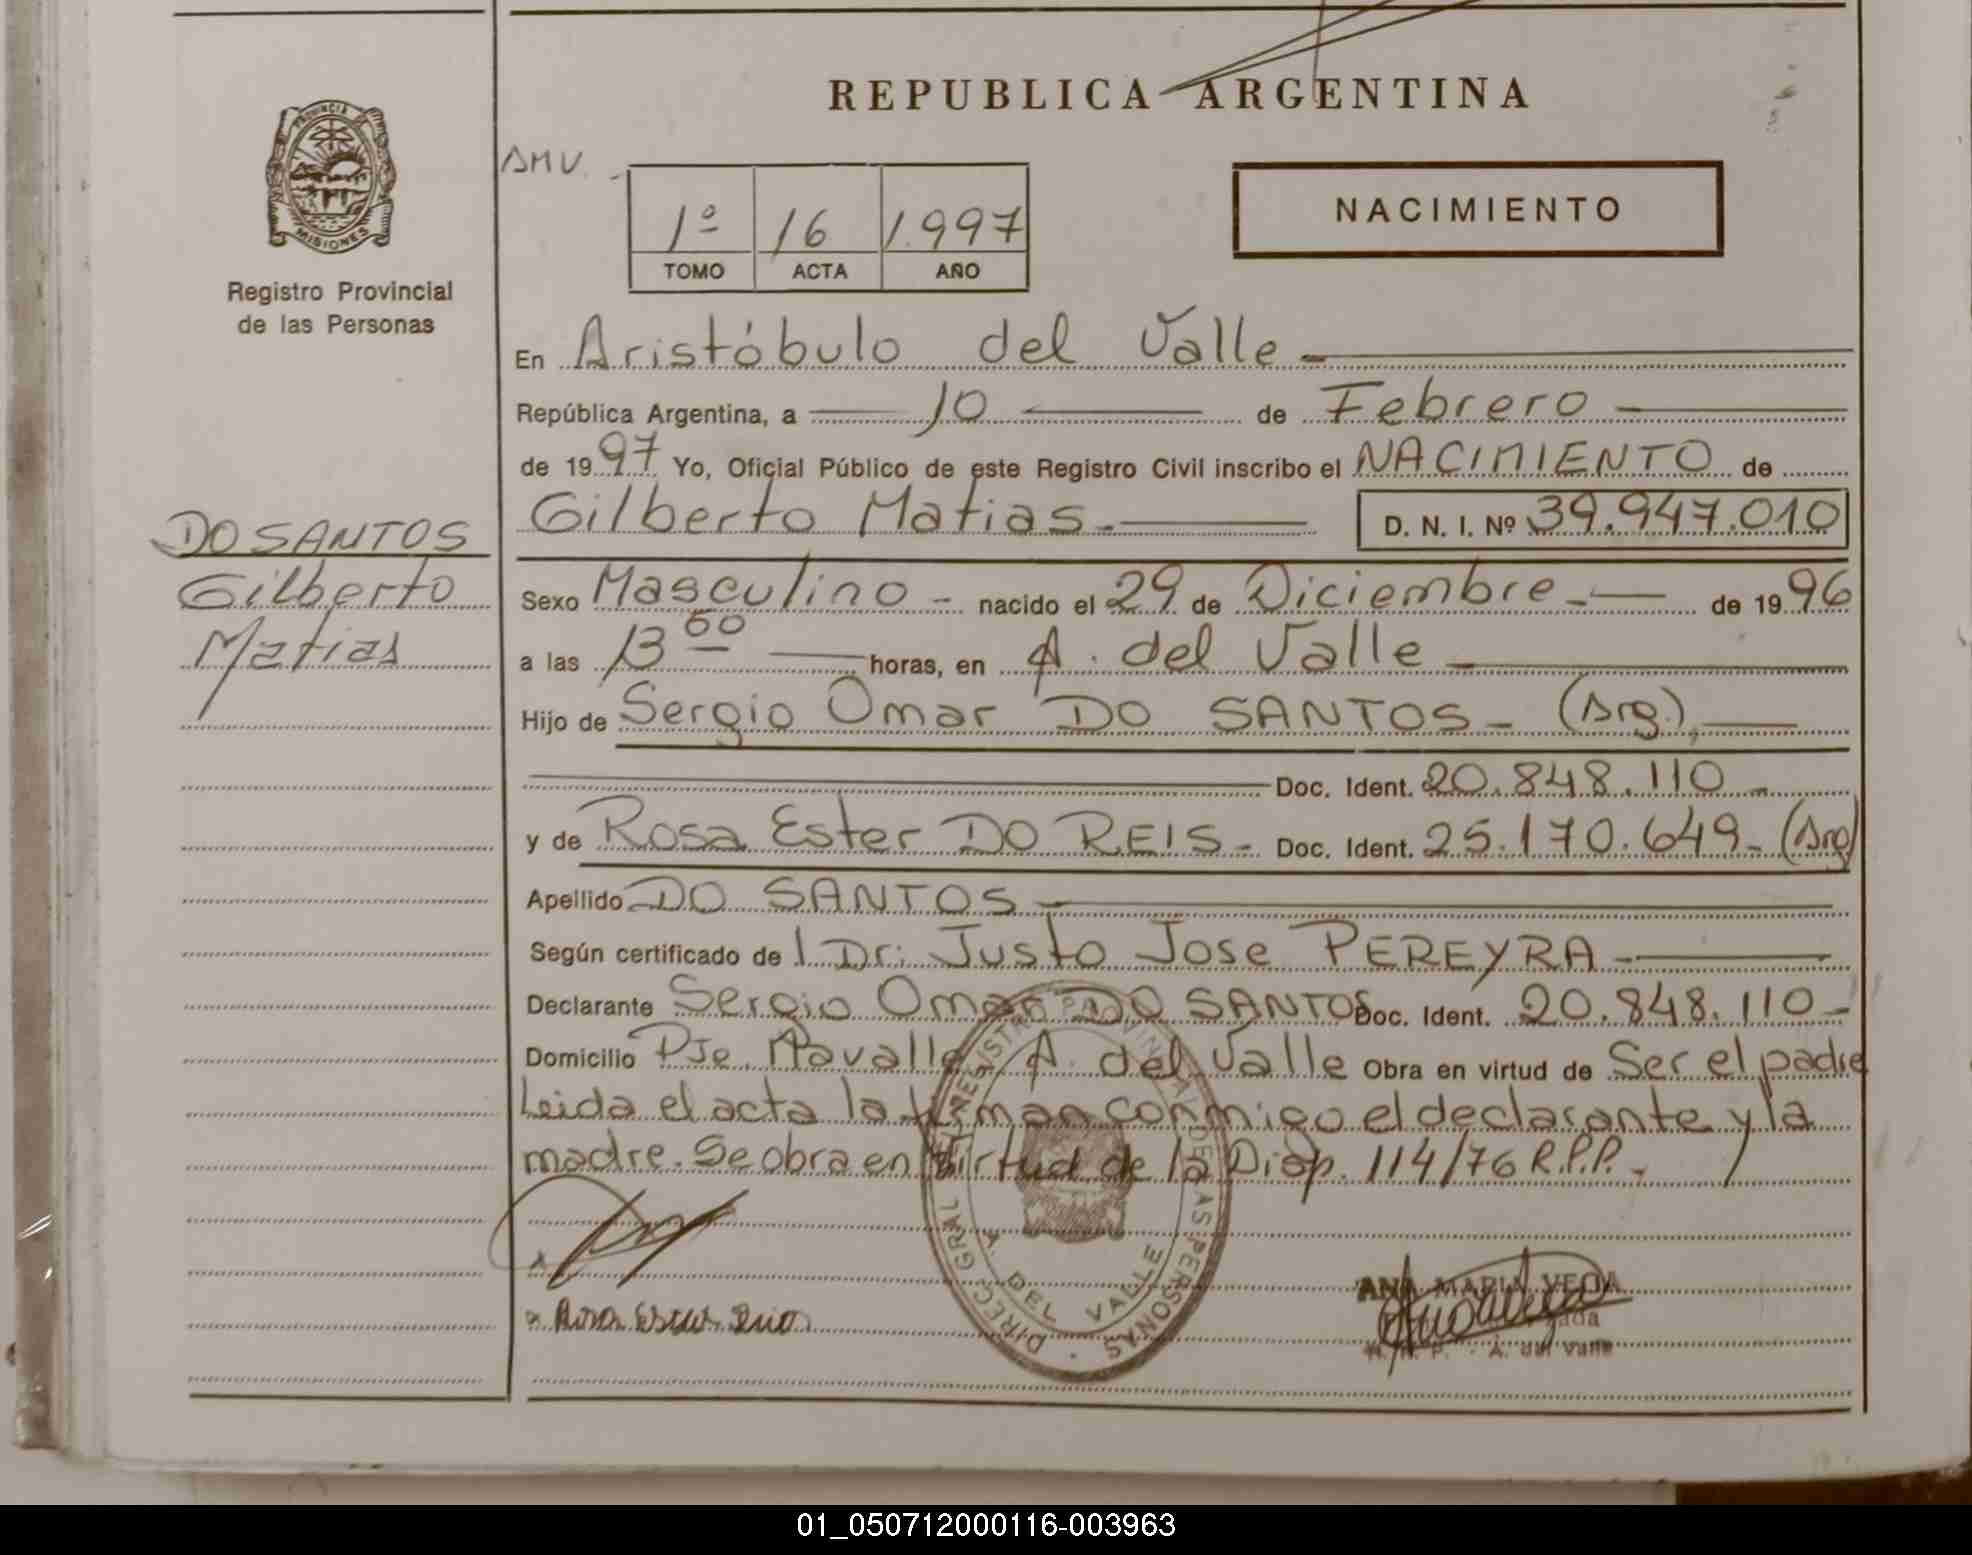 REPUBLICA ARGENTINA
PROVINCIA
MISIONES
Registro Provincial
de las Personas
1º 16 1.997
TOMO ACTA AÑO
NACIMIENTO
En Aristóbulo del Valle
República Argentina, a 10 de Febrero
de 1997 Yo, Oficial Público de este Registro Civil inscribo el NACIMIENTO de
Gilberto Matias D. N. I. Nº 39.947.010
DO SANTOS
Gilberto
Matias
Sexo Masculino - nacido el 29 de Diciembre de 1996
a las 13 00 horas, en A. del Valle
Hijo de Sergio Omar DO SANTOS - (Arg.),
Doc. Ident. 20.848.110 -
y de Rosa Ester DO REIS - Doc. Ident. 25.170.649 - (Arg)
Apellido DO SANTOS
Según certificado de l Dr: Justo Jose PEREYRA
Declarante Sergio Omar DO SANTOS Doc. Ident. 20.848.110 -
Domicilio Pje. A. del Valle Obra en virtud de Ser el padre
Leida el acta la firman conmigo el declarante y la
madre. Se obra en virtud de la Disp. 114/76 R.P.P.
DIREC. GRAL. DEL REGISTRO PROVINCIAL DE LAS PERSONAS
A. DEL VALLE
ANA MARIA VEGA
A. del Valle
01_050712000116-003963